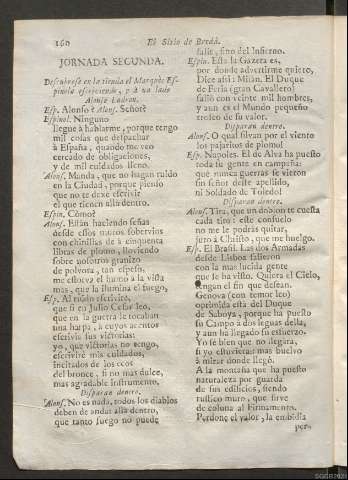 160
El Sitio de Bredà.
JORNADA SEGUNDA.
Descubrese en la tienda el Marquès Es-
pinola escriviendo, y à un lado
Alonso Ladron.
Esp. Alonso? Alons. Señor?
Espinol. Ninguno
llegue à hablarme, porque tengo
mil cosas que despachar
à España, quando me veo
cercado de obligaciones,
y de mil cuidados lleno.
Alons. Manda, que no hagan ruido
en la Ciudad, porque pienso
que no te dexe escrivir
el que tienen allà dentro.
Espin. Còmo?
Alons. Estàn haciendo señas
desde essos muros sobervios
con chinillas de à cinquenta
libras de plomo, lloviendo
sobre nosotros granizo
de polvora, tan espesso,
me estorva el humo à la vista
mas, que la ilumina el fuego,
Esp. Al mismo escrivirè,
que si en Julio Cesar leo,
que en la guerra le tocaban
una harpa, à cuyos acentos
escrivia sus victorias:
yo, que victorias no tengo,
escrivirè mis cuidados,
incitados de los ecos
del bronce, si no mas dulce,
mas agradable instrumento.
Disparan dentro.
Alons. No es nada, todos los diablos
deben de andar allà dentro,
que tanto fuego no puede
salir, sino del Infierno.
Espin. Esta la Gazeta es,
por donde advertirme quiero,
Dice assi: Milàn. El Duque
de Feria (gran Cavallero)
saliò con veinte mil hombres,
y aun es el Mundo pequeño
trofeo de su valor.
Disparan dentro.
Alons. O qual silvan por el viento
los pajarlos de plomo!
Esp. Napoles. El de Alva ha puesto
toda su gente en campaña:
què nunca guerras se vieron
sin señor deste apellido,
ni Soldado de Toledo!
Disparan dentro.
Alons. Tira, que un doblon te cuesta
cada tiro: este consuelo
no me le podràs quitar,
juro à Christo, que me huelgo.
Es. El Brasil. Las dos Armadas
desde Lisboa salieron
con la mas lucida gente
que se ha visto. Quiera el Cielo,
tengan el fin que desean.
Genova (con temor leo)
oprimida està del Duque
de Saboya, porque ha puesto
su Campo à dos leguas della,
y aun ha llegado su esfuerzo.
Yo sè bien que no llegàra,
si yo estuviera: mas buelvo
à mirar donde llegò.
A la montaña que ha puesto
naturaleza por guarda
de sus edificios, siendo
rustico muro, que sirve
de coluna al Firmamento.
Perdone el valor, la embidia
pero